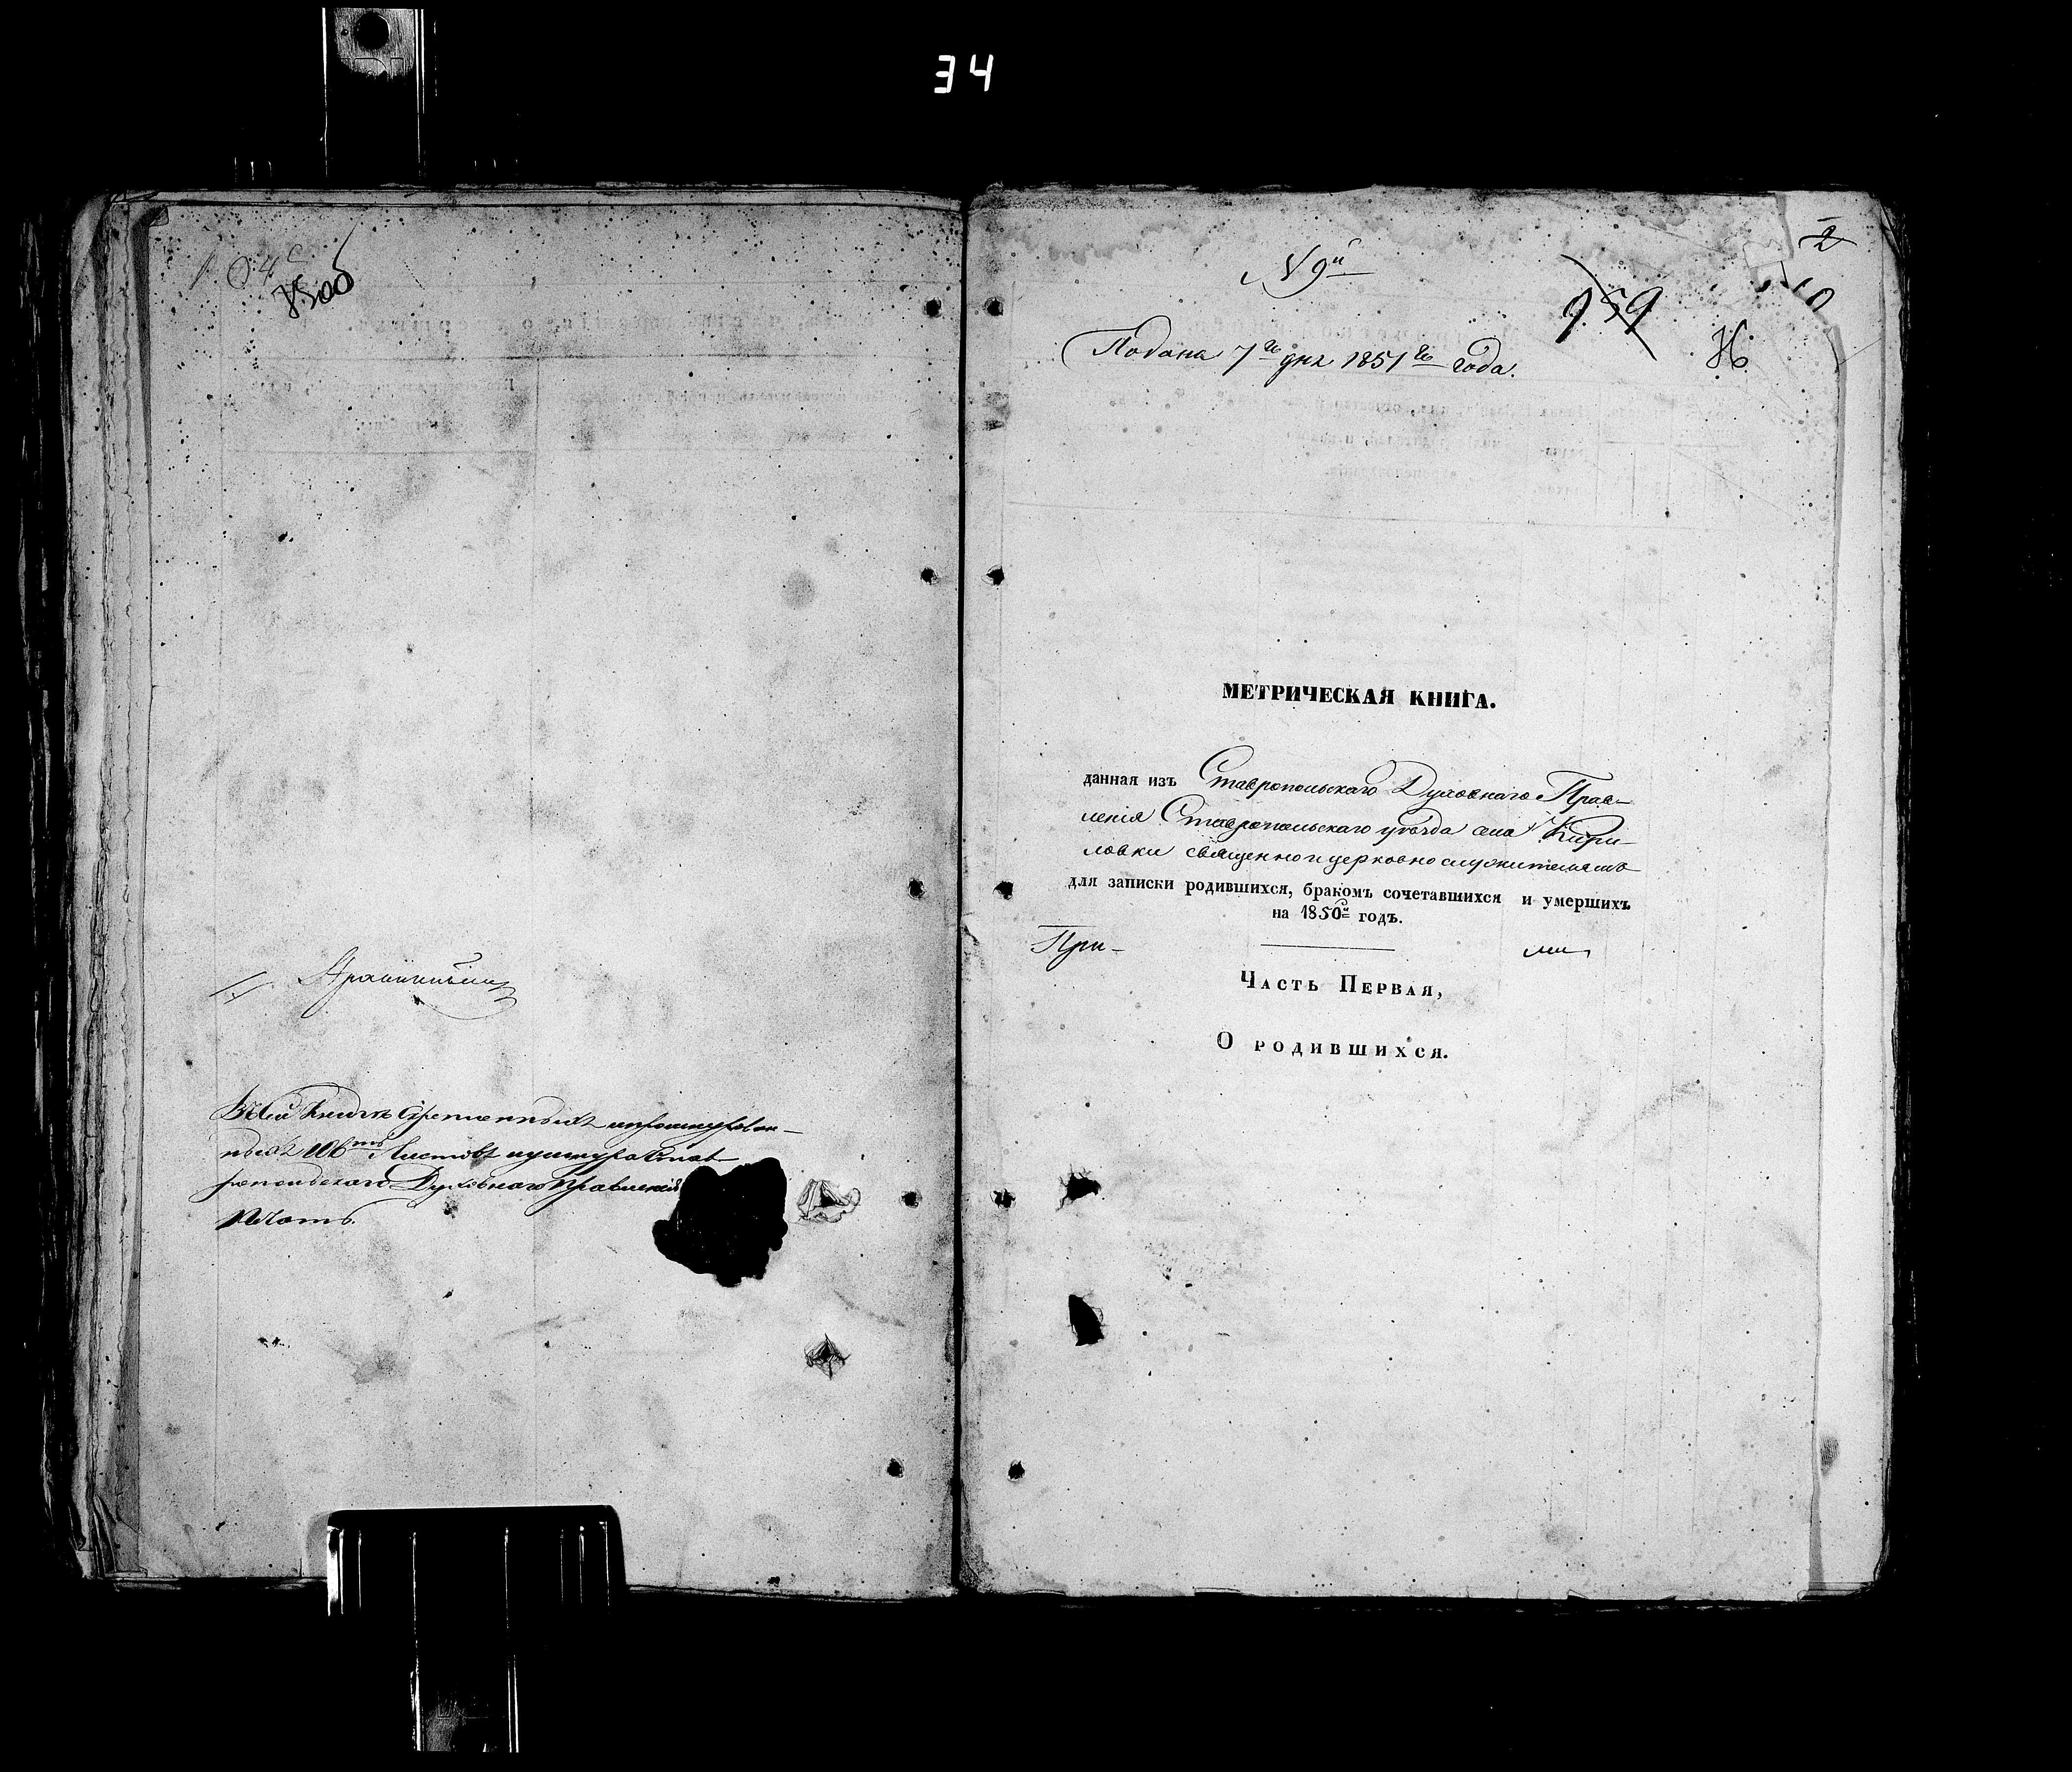 34
Въ сей книгѣ скрепленныхъ прошнурован-
ныхъ листовъ къ шнуру Став-
ропольскаго Духовнаго Правленія
печать.
N 9й
959
2
Подана 7го дня 1851го года.
МЕТРИЧЕСКАЯ КНИГА.
данная изъ Ставропольскаго Духовнаго Прав-
ленія Ставропольскаго уѣзда села Кири-
ловки священно и церковнослужителямъ
для записки родившихся, бракомъ сочетавшихся и умершихъ
на 1850й годъ.
При- ми
Часть Первая,
О родившихся.